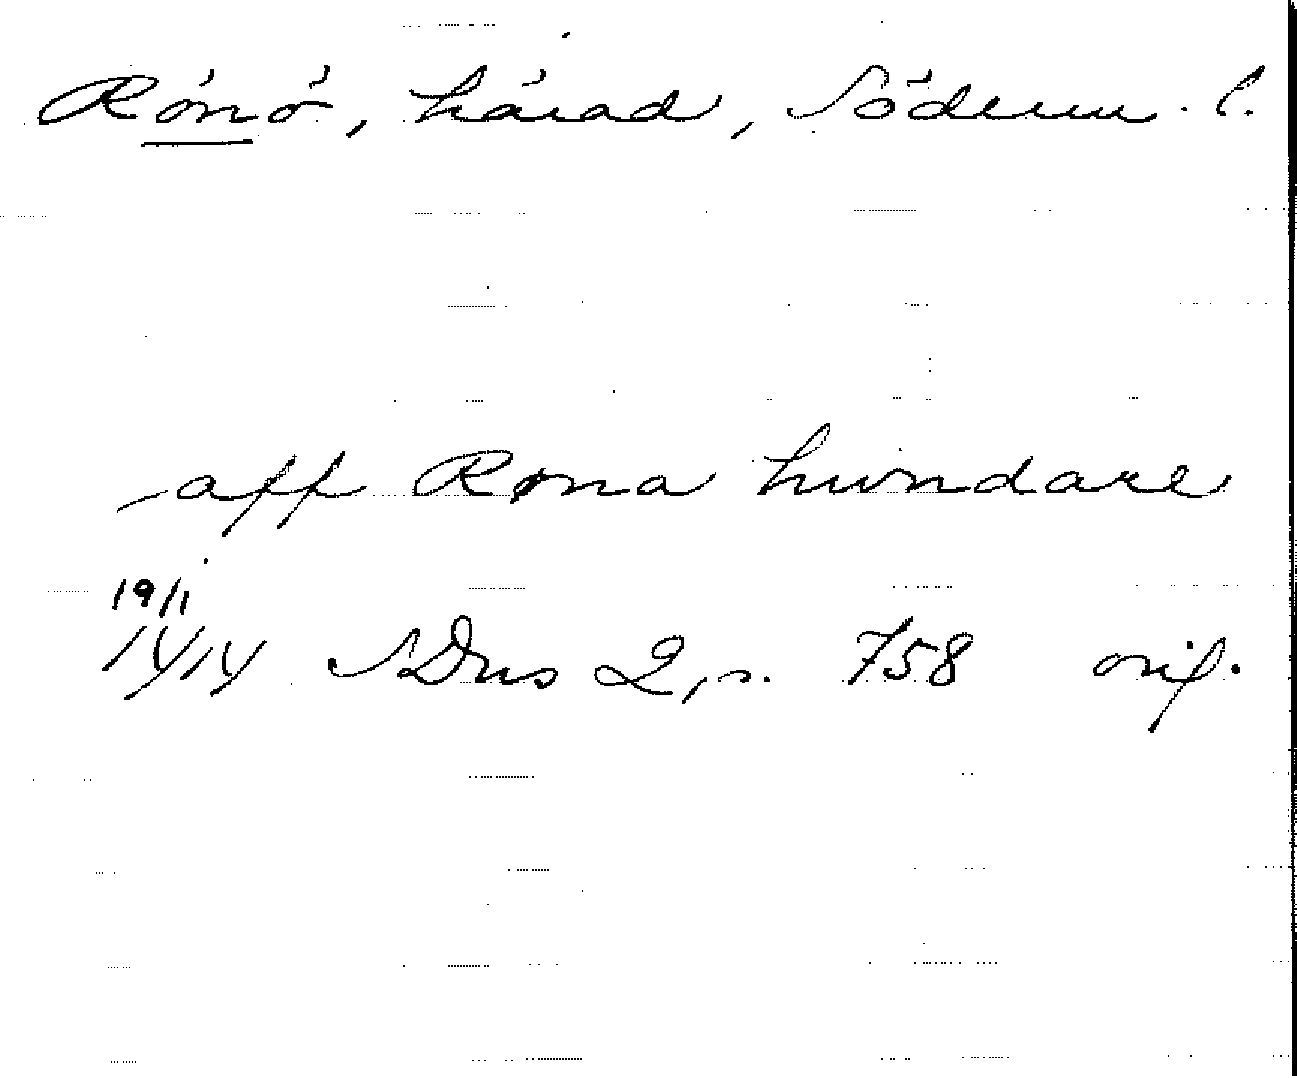 Rönö, härad, Söderm. l.
aff Røna hundare
19/1
1414 SDns 2, s. 758 orig.